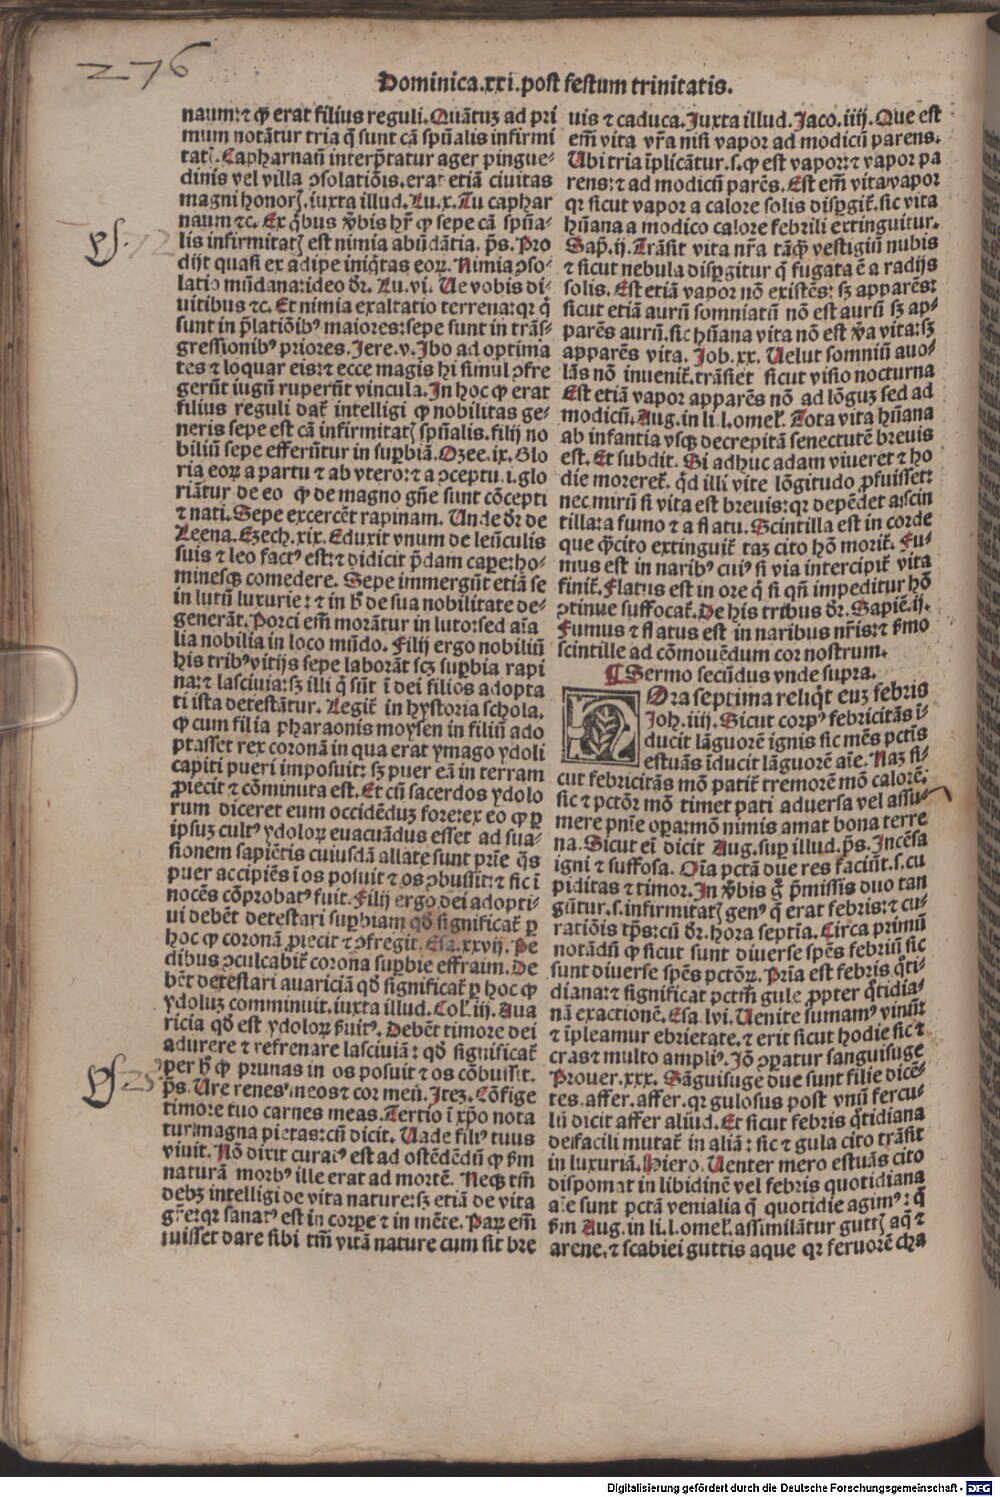 276
Dominica.xxi.post festum trinitatis.
naum:⁊ ꝙ erat filius reguli. Quãtuꝫ ad pri
mum notãtur tria q̃ sunt cã spũalis infirmi
tatꝭ. Capharnaũ interp̃tatur ager pingue-
dinis vel villa ꝯsolatiõis. erat etiã ciuitas
magni honorꝭ. iuxta illud. Lu.x. Tu caphar
naum ⁊c. Ex q̃bus v̾bis hr̃ ꝙ sepe cã spũa-
lis infirmitatꝭ est nimia abũdãtia. p̃s. Pro
ps. 72
dijt quasi ex adipe iniq̃tas eoꝝ. Nimia ꝯso-
latio mũdana:ideo dr̃. Lu.vi. Ue vobis di-
uitibus ⁊c. Et nimia exaltatio terrena:qꝛ q̃
sunt in p̃latiõibꝰ maiores:sepe sunt in trãs-
gressionibꝰ priores. Jere.v. Jbo ad optima
tes ⁊ loquar eis:⁊ ecce magis hi simul ꝯfre
gerũt iugũ ruperũt vincula. Jn hoc ꝙ erat
filius reguli datᷣ intelligi ꝙ nobilitas ge-
neris sepe est cã infirmitatꝭ spũalis. filij no
biliũ sepe efferũtur in suꝑbiã. Ozee.ix. Glo
ria eoꝝ a partu ⁊ ab vtero:⁊ a ꝯceptu.i.glo
riãtur de eo ꝙ de magno gñe sunt cõcepti
⁊ nati. Sepe excercẽt rapinam. Unde dr̃ de
Leena. Ezech.xix. Eduxit vnum de leũculis
suis ⁊ leo factꝰ est:⁊ didicit p̃dam caꝑe:ho-
minesqꝫ comedere. Sepe immergũt etiã se
in lutũ luxurie:⁊ in h̾ de sua nobilitate de-
generãt. Porci em̃ morãtur in luto:sed aĩa
lia nobilia in loco mũdo. Filij ergo nobiliũ
his tribꝰ vitijs sepe laborãt scꝫ suꝑbia rapi
na:⁊ lasciuia:sꝫ illi q̃ sũt ĩ dei filios adopta
ti ista detestãtur. Legitᷣ in hystoria schola.
ꝙ cum filia pharaonis moysen in filiũ ado
ptasset rex coronã in qua erat ymago ydoli
capiti pueri imposuit: sꝫ puer eã in terram
ꝓiecit ⁊ cõminuta est. Et cũ sacerdos ydolo
rum diceret eum occidẽduꝫ fore:ex eo ꝙ ꝑ
ipsuꝫ cultꝰ ydoloꝝ euacuãdus esset ad sua-
sionem sapiẽtis cuiusdã allate sunt prũe q̃s
puer accipiẽs ĩ os posuit ⁊ os ꝯbussit:⁊ sic ĩ
nocẽs cõprobatꝰ fuit. Filij ergo dei adopti-
ui debẽt detestari suꝑbiam qđ significatᷣ ꝑ
hoc ꝙ coronã ꝓiecit ⁊ ꝯfregit. Esa.xxvij. Pe
dibus ꝯculcabitᷣ corona suꝑbie effraim. De
bẽt detestari auariciã qđ significatᷣ ꝑ hoc ꝙ
ydoluꝫ comminuit. iuxta illud. Col'.iij. Aua
ricia qđ est ydoloꝝ s̾uitꝰ. Debẽt timore dei
adurere ⁊ refrenare lasciuiã: qđ significatᷣ
per h̾ ꝙ prunas in os posuit ⁊ os cõbussit.
ps 25
p̃s. Ure renes meos ⁊ cor meũ. Jteꝫ. Cõfige
timore tuo carnes meas. Tertio ĩ xp̃o nota
tur magna pietas:cũ dicit. Uade filiꝰ tuus
viuit. Nõ dixit curatꝰ est ad ostẽdẽdũ ꝙ s̾m
naturã morbꝰ ille erat ad mortẽ. Neqꝫ tm̃
debꝫ intelligi de vita nature:sꝫ etiã de vita
gr̃e:qꝛ sanatꝰ est in corꝑe ⁊ in mẽte. Paꝝ em̃
iuisset dare sibi tm̃ vitã nature cum sit bre
uis ⁊ caduca. Juxta illud. Jaco.iiij. Que est
em̃ vita vr̃a nisi vapor ad modicũ parens.
Ubi tria ĩplicãtur.s.ꝙ est vapor:⁊ vapor pa
rens:⁊ ad modicũ parẽs. Est em̃ vita vapor
qꝛ sicut vapor a calore solis disꝑgitᷣ. sic vita
hũana a modico calore febrili extinguitur.
Sap̃.ij. Trãsit vita nr̃a tãꝙ̃ vestigiũ nubis
⁊ sicut nebula disꝑgitur q̃ fugata ẽ a radijs
solis. Est etiã vapor nõ existẽs: sꝫ apparẽs:
sicut etiã aurũ somniatũ nõ est aurũ sꝫ ap-
parẽs aurũ. sic hũana vita nõ est v̾a vita:sꝫ
apparẽs vita. Job.xx. Uelut somniũ auo-
lãs nõ inuenitᷣ. trãsiet sicut visio nocturna
Est etiã vapor apparẽs nõ ad lõguꝫ sed ad
modicũ. Aug. in li.l.omel'. Tota vita hũana
ab infantia vsqꝫ decrepitã senectutẽ breuis
est. Et subdit. Si adhuc adam viueret ⁊ ho
die moreretᷣ. q̃d illi vite lõgitudo ꝓfuisset:
nec mirũ si vita est breuis:qꝛ depẽdet a scin
tilla:a fumo ⁊ a flatu. Scintilla est in corde
que q̃cito extinguitᷣ taꝫ cito hõ moritᷣ. Fu-
mus est in naribꝰ cuiꝰ si via intercipitᷣ vita
finitᷣ. Flatus est in ore q̃ si qñ impeditur hõ
ꝯtinue suffocatᷣ. De his tribus dr̃. Sapiẽ.ij.
Fumus ⁊ flatus est in naribus nr̃is:⁊ s̾mo
scintille ad cõmouẽdum cor nostrum.
¶ Sermo secũdus vnde supra.
HOra septima reliq̃t euꝫ febris
Joh.iiij. Sicut corpꝰ febricitãs ĩ-
ducit lãguorẽ ignis sic mẽs pctĩs
estuãs ĩducit lãguorẽ aĩe. Naꝫ si-
cut febricitãs mõ patitᷣ tremorẽ mõ calorẽ:
sic ⁊ pctõr mõ timet pati aduersa vel assu-
mere pnĩe oꝑa:mõ nimis amat bona terre
na. Sicut eĩ dicit Aug. suꝑ illud. p̃s. Jncẽsa
igni ⁊ suffosa. Oĩa pctã due res faciũt.s.cu
piditas ⁊ timor. Jn v̾bis g̊ p̃missis duo tan
gũtur.s.infirmitatꝭ genꝰ q̃ erat febris:⁊ cu-
ratiõis tp̃s:cũ dr̃. hora septĩa. Circa primũ
notãdũ ꝙ sicut sunt diuerse sp̃es febriũ sic
sunt diuerse sp̃es pctõꝝ. Prĩa est febris q̃ti-
diana:⁊ significat pctm̃ gule ꝓpter q̃tidia-
nã exactionẽ. Esa.lvi. Uenite sumamꝰ vinũ
⁊ ĩpleamur ebrietate. ⁊ erit sicut hodie sic ⁊
cras ⁊ multo ampliꝰ. Jõ ꝯꝑatur sanguisuge
Prouer.xxx. Sãguisuge due sunt filie dicẽ-
tes. affer. affer. qꝛ gulosus post vnũ fercu-
lũ dicit affer aliud. Et sicut febris q̃tidiana
de facili mutatᷣ in aliã: sic ⁊ gula cito trãsit
in luxuriã. Hiero. Uenter mero estuãs cito
dispomat in libidinẽ vel febris quotidiana
aĩe sunt pctã venialia q̃ quotidie agimꝰ: q̃
s̾m Aug. in li.l.omel'. assimilãtur guttꝭ aq̃ ⁊
arene. ⁊ scabiei guttis aque qꝛ feruorẽ cha
Digitalisierung gefördert durch die Deutsche Forschungsgemeinschaft - DFG